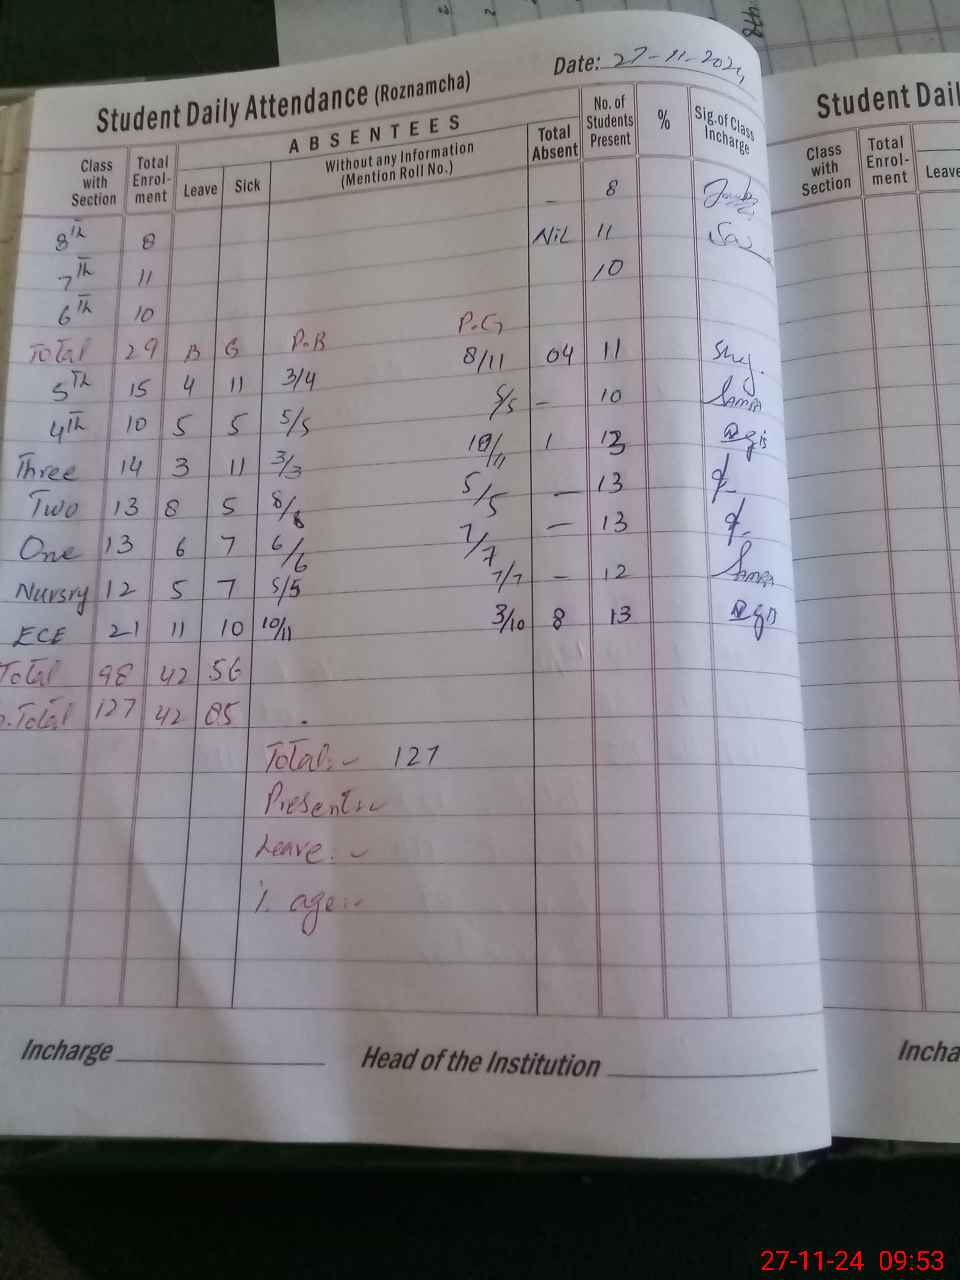 478
Date: 27-11-2024
Student Daily Attendance (Roznamcha)
Class with Section Total Enrol-ment ABSENTEES Leave Sick Without any Information (Mention Roll No.) Total Absent No. of Students Present % Sig. of Class Incharge
8th 8 – 8
7th 11 Nil 11
6th 10 10
Total 29 B G P.B P.G
5th 15 4 11 3/4 8/11 04 11
4th 10 5 5 5/5 5/5 – 10
Three 14 3 11 3/3 10/11 1 13
Two 13 8 5 8/8 5/5 – 13
One 13 6 7 6/6 7/7 – 13
Nursry 12 5 7 5/5 7/7 – 12
ECE 21 11 10 10/11 3/10 8 13
Total 98 42 56
G.Total 127 42 85
Total:- 127
Present:-
Leave:-
%age:-
Incharge
Head of the Institution
Student Dail
Class with Section Total Enrol-ment Leave
Incha
27-11-24 09:53